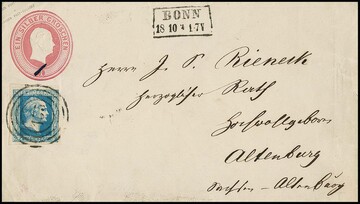 EIN SILBER GROSCHEN
BONN
18 10
Herrn J. P. Rieneck
Herzoglicher Rath
Hochwohlgeboren
Altenburg
Sachsen-Altenburg